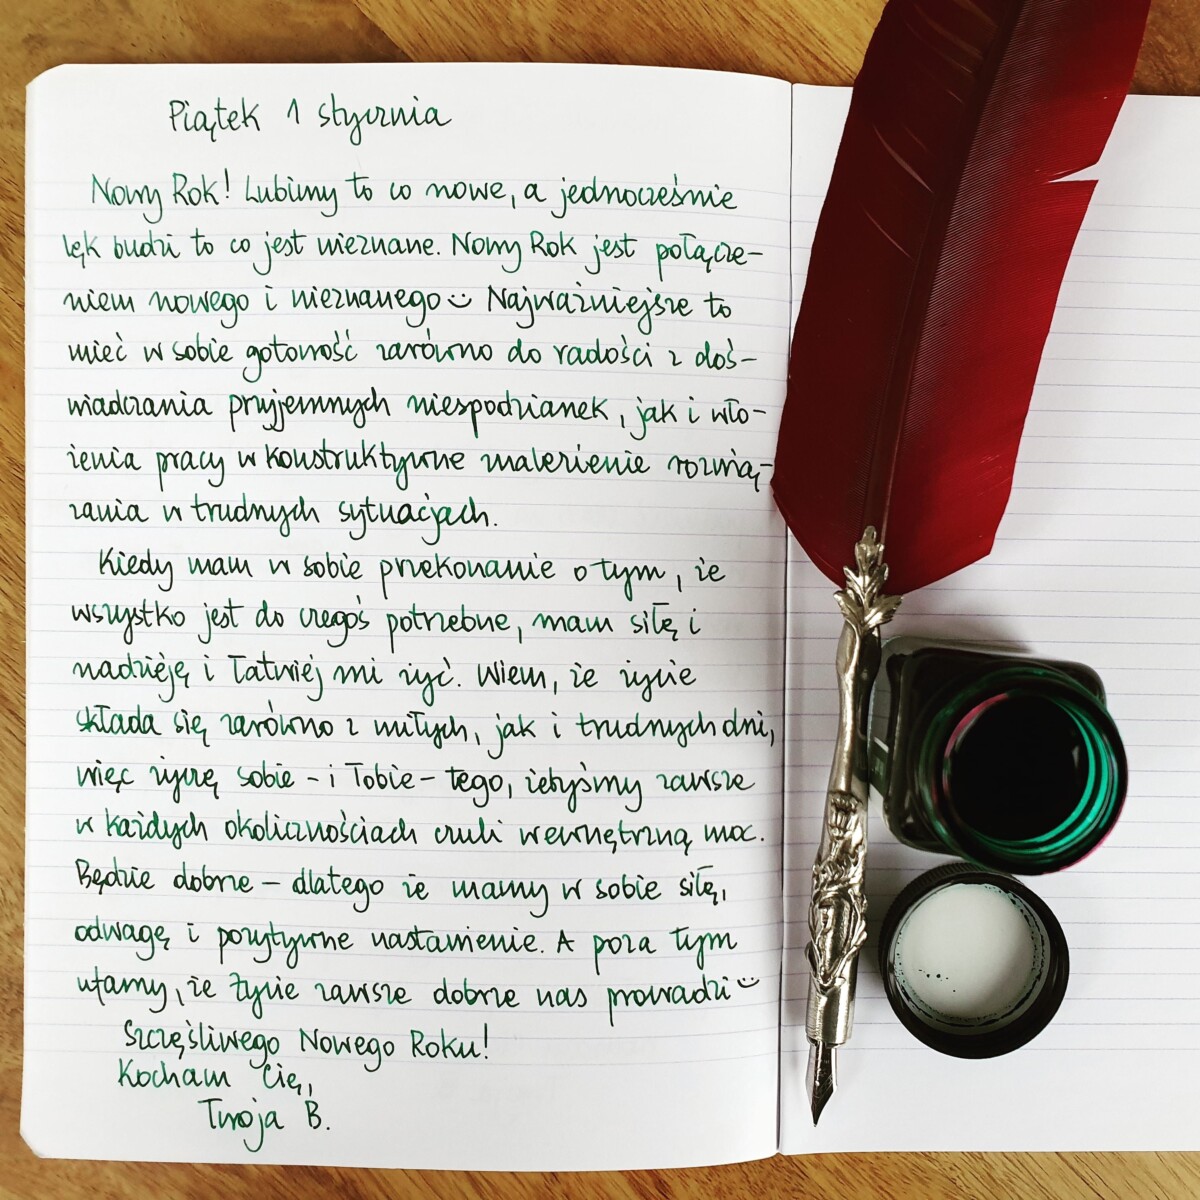 Piątek 1 stycznia
Nowy Rok! Lubimy to co nowe, a jednocześnie
lęk budzi to co jest nieznane. Nowy Rok jest połącze-
niem nowego i nieznanego☺ Najważniejsze to
mieć w sobie gotowość zarówno do radości z doś-
wiadczania przyjemnych niespodzianek, jak i wło-
żenia pracy w konstruktywne znalezienie rozwią-
zania w trudnych sytuacjach.
Kiedy mam w sobie przekonanie o tym, że
wszystko jest do czegoś potrzebne, mam siłę i
nadzieję i łatwiej mi żyć. Wiem, że życie
składa się zarówno z miłych, jak i trudnych dni,
więc życzę sobie - i Tobie - tego, żebyśmy zawsze
w każdych okolicznościach czuli wewnętrzną moc.
Będzie dobrze – dlatego że mamy w sobie siłę,
odwagę i pozytywne nastawienie. A poza tym
ufamy, że Życie zawsze dobrze nas prowadzi☺
Szczęśliwego Nowego Roku!
Kocham Cię,
Twoja B.